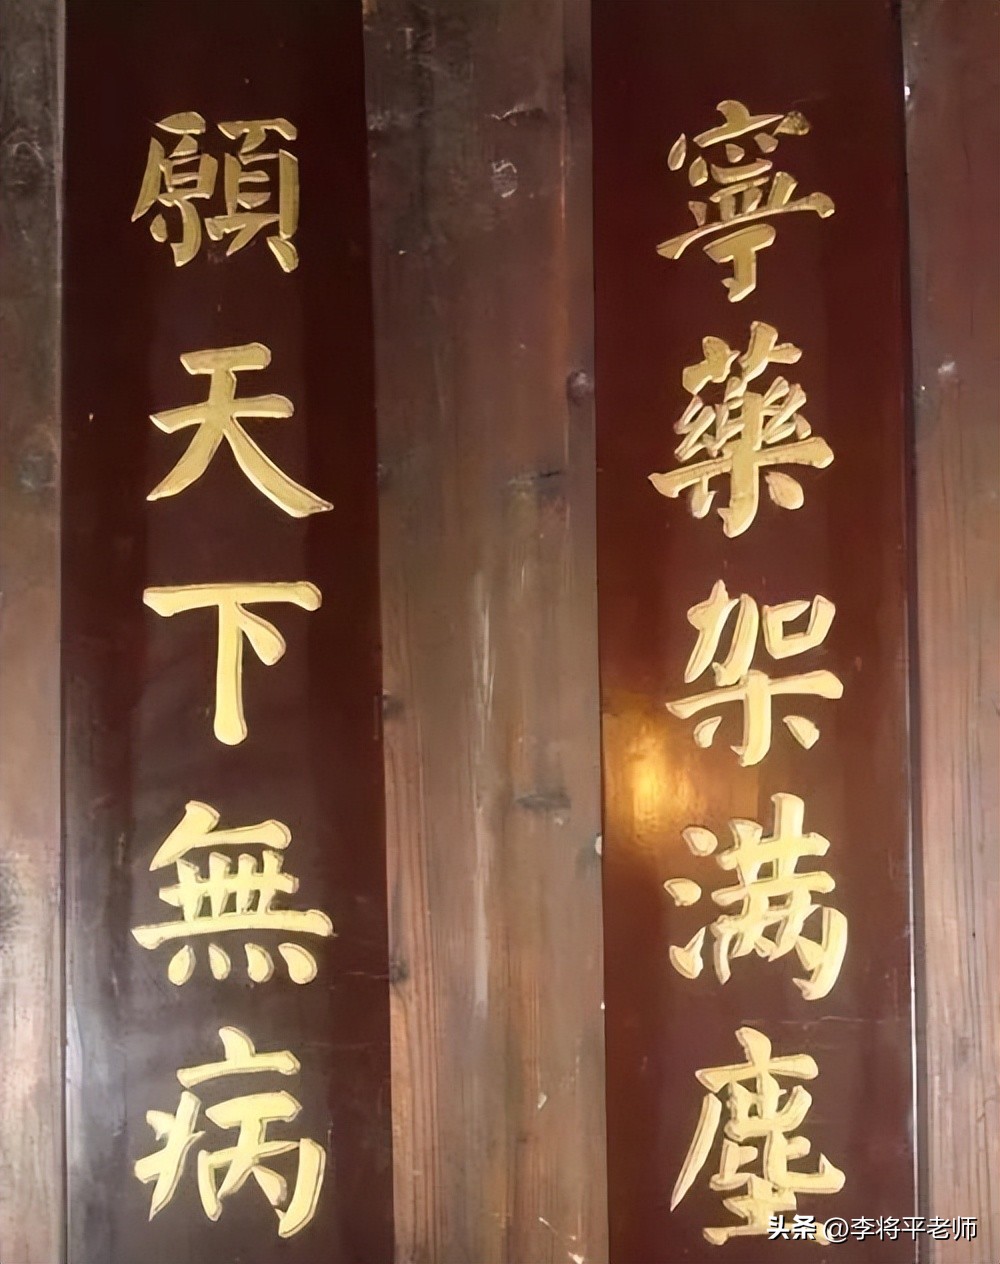 寧藥架满塵
願天下無病
头条 @李将平老师